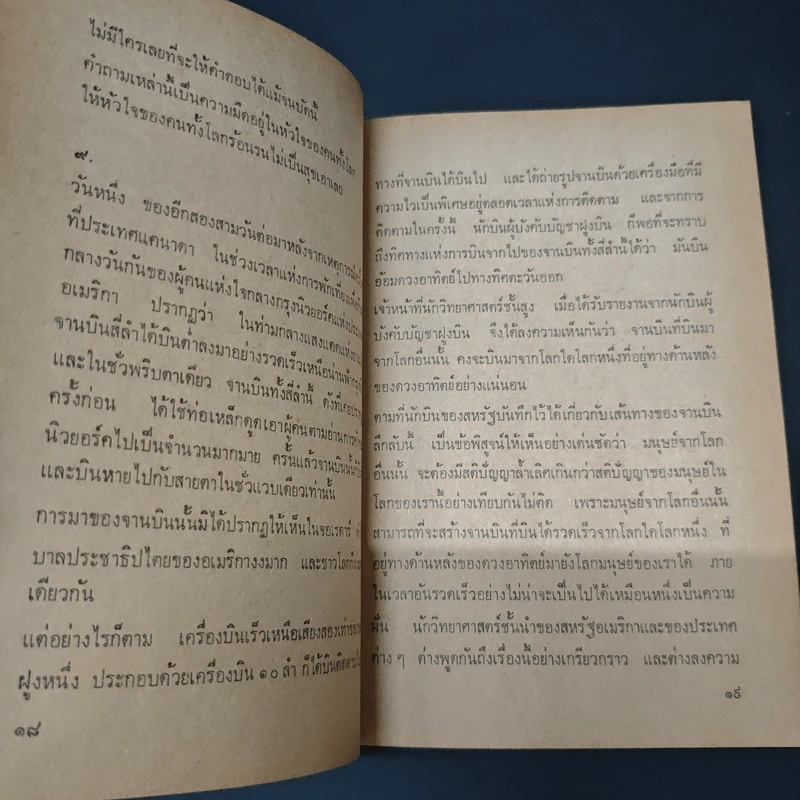 ไม่มีใครเลยที่จะให้คำตอบได้แม้จนบัดนี้
คำถามเหล่านี้เป็นความมืดอยู่ในหัวใจของคนทั้งโลก
ให้หัวใจของคนทั้งโลกร้อนรนไม่เป็นสุขเอาเลย
๙.
วันหนึ่ง ของอีกสองสามวันต่อมาหลังจากเหตุการณ์
ที่ประเทศแคนาดา ในช่วงเวลาแห่งการพักเที่ยง
กลางวันกันของผู้คนแห่งใจกลางกรุงนิวยอร์คแห่ง
อเมริกา ปรากฏว่า ในท่ามกลางแสงแดด
จานบินสี่ลำได้บินต่ำลงมาอย่างรวดเร็วเหนือน่านฟ้า
และในชั่วพริบตาเดียว จานบินทั้งสี่ลำนี้ ดังที่เคย
ครั้งก่อน ได้ใช้ท่อเหล็กดูดเอาผู้คนตามย่าน
นิวยอร์คไปเป็นจำนวนมากมาย ครั้นแล้วจานบินนั้น
และบินหายไปกับสายตาในชั่วแวบเดียวเท่านั้น
การมาของจานบินนั้นมิได้ปรากฏให้เห็นในจอเรดาร์
บาลประชาธิปไตยของอเมริกางงมาก และชาวโลก
เดียวกัน
แต่อย่างไรก็ตาม เครื่องบินเร็วเหนือเสียงสองเท่า
ฝูงหนึ่ง ประกอบด้วยเครื่องบิน ๑๐ ลำ ก็ได้บินติดตาม
๑๘
ทางที่จานบินได้บินไป และได้ถ่ายรูปจานบินด้วยเครื่องมือที่มี
ความไวเป็นพิเศษอยู่ตลอดเวลาแห่งการติดตาม และจากการ
ติดตามในครั้งนี้ นักบินผู้บังคับบัญชาฝูงบิน ก็พอที่จะทราบ
ถึงทิศทางแห่งการบินจากไปของจานบินทั้งสี่ลำนี้ได้ว่า มันบิน
อ้อมดวงอาทิตย์ไปทางทิศตะวันออก
เจ้าหน้าที่นักวิทยาศาสตร์ชั้นสูง เมื่อได้รับรายงานจากนักบินผู้
บังคับบัญชาฝูงบิน จึงได้ลงความเห็นกันว่า จานบินที่บินมา
จากโลกอื่นนั้น คงจะบินมาจากโลกใดโลกหนึ่งที่อยู่ทางด้านหลัง
ของดวงอาทิตย์อย่างแน่นอน
ตามที่นักบินของสหรัฐบันทึกไว้ได้เกี่ยวกับเส้นทางของจานบิน
ลึกลับนี้ เป็นข้อพิสูจน์ให้เห็นอย่างเด่นชัดว่า มนุษย์จากโลก
อื่นนั้น จะต้องมีสติปัญญาล้ำเลิศเกินกว่าสติปัญญาของมนุษย์ใน
โลกของเรานี้อย่างเทียบกันไม่ติด เพราะมนุษย์จากโลกอื่นนั้น
สามารถที่จะสร้างจานบินที่บินได้รวดเร็วจากโลกใดโลกหนึ่ง ที่
อยู่ทางด้านหลังของดวงอาทิตย์มายังโลกมนุษย์ของเราได้ ภาย
ในเวลาอันรวดเร็วอย่างไม่น่าจะเป็นไปได้เหมือนหนึ่งเป็นความ
ฝัน นักวิทยาศาสตร์ชั้นนำของสหรัฐอเมริกาและของประเทศ
ต่าง ๆ ต่างพูดกันถึงเรื่องนี้อย่างเกรียวกราว และต่างลงความ
๑๙